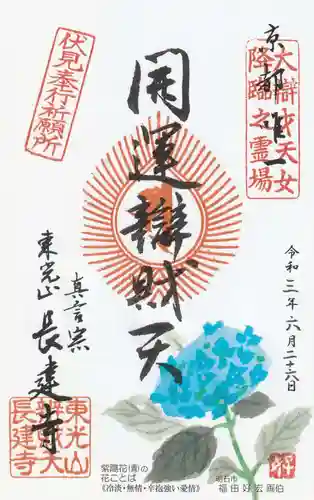 京都唯一
大辯才天女
降臨之霊場
伏見奉行祈願所
開運辯財天
令和三年六月二十六日
真言宗
東光山
長建寺
東光山
辨財天
長建寺
紫陽花(青)の
花ことば
《冷淡・無情・辛抱強い愛情》
明石市
福田好宏画伯